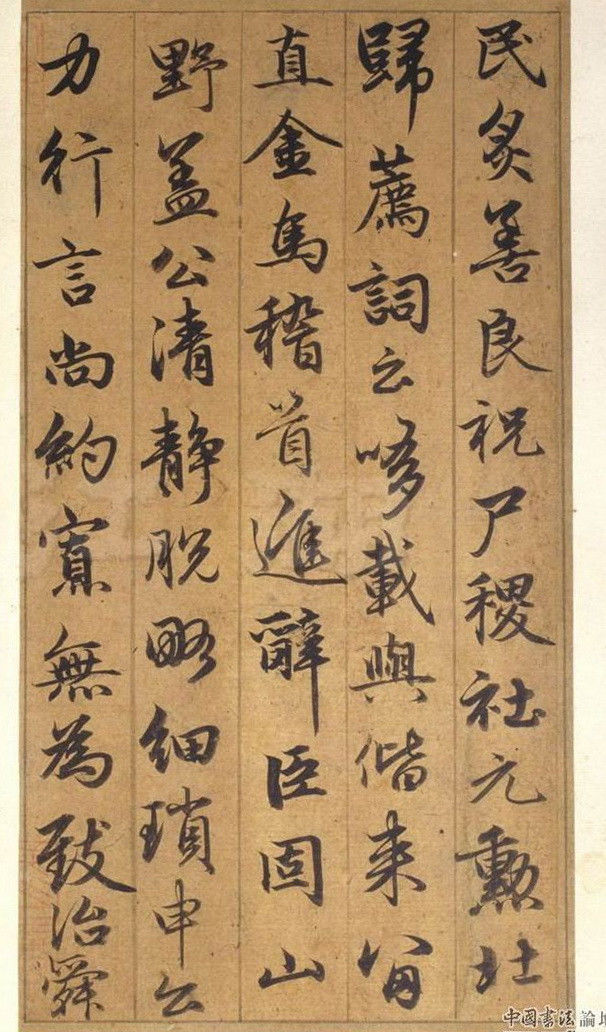 民炙善良祝尸稷社元勳
歸薦詞云載與偕來
直金馬稽首進辭臣固山
野蓋公清靜脫略細瑣申公
力行言尚約寡無為致治舜
中國書法論壇